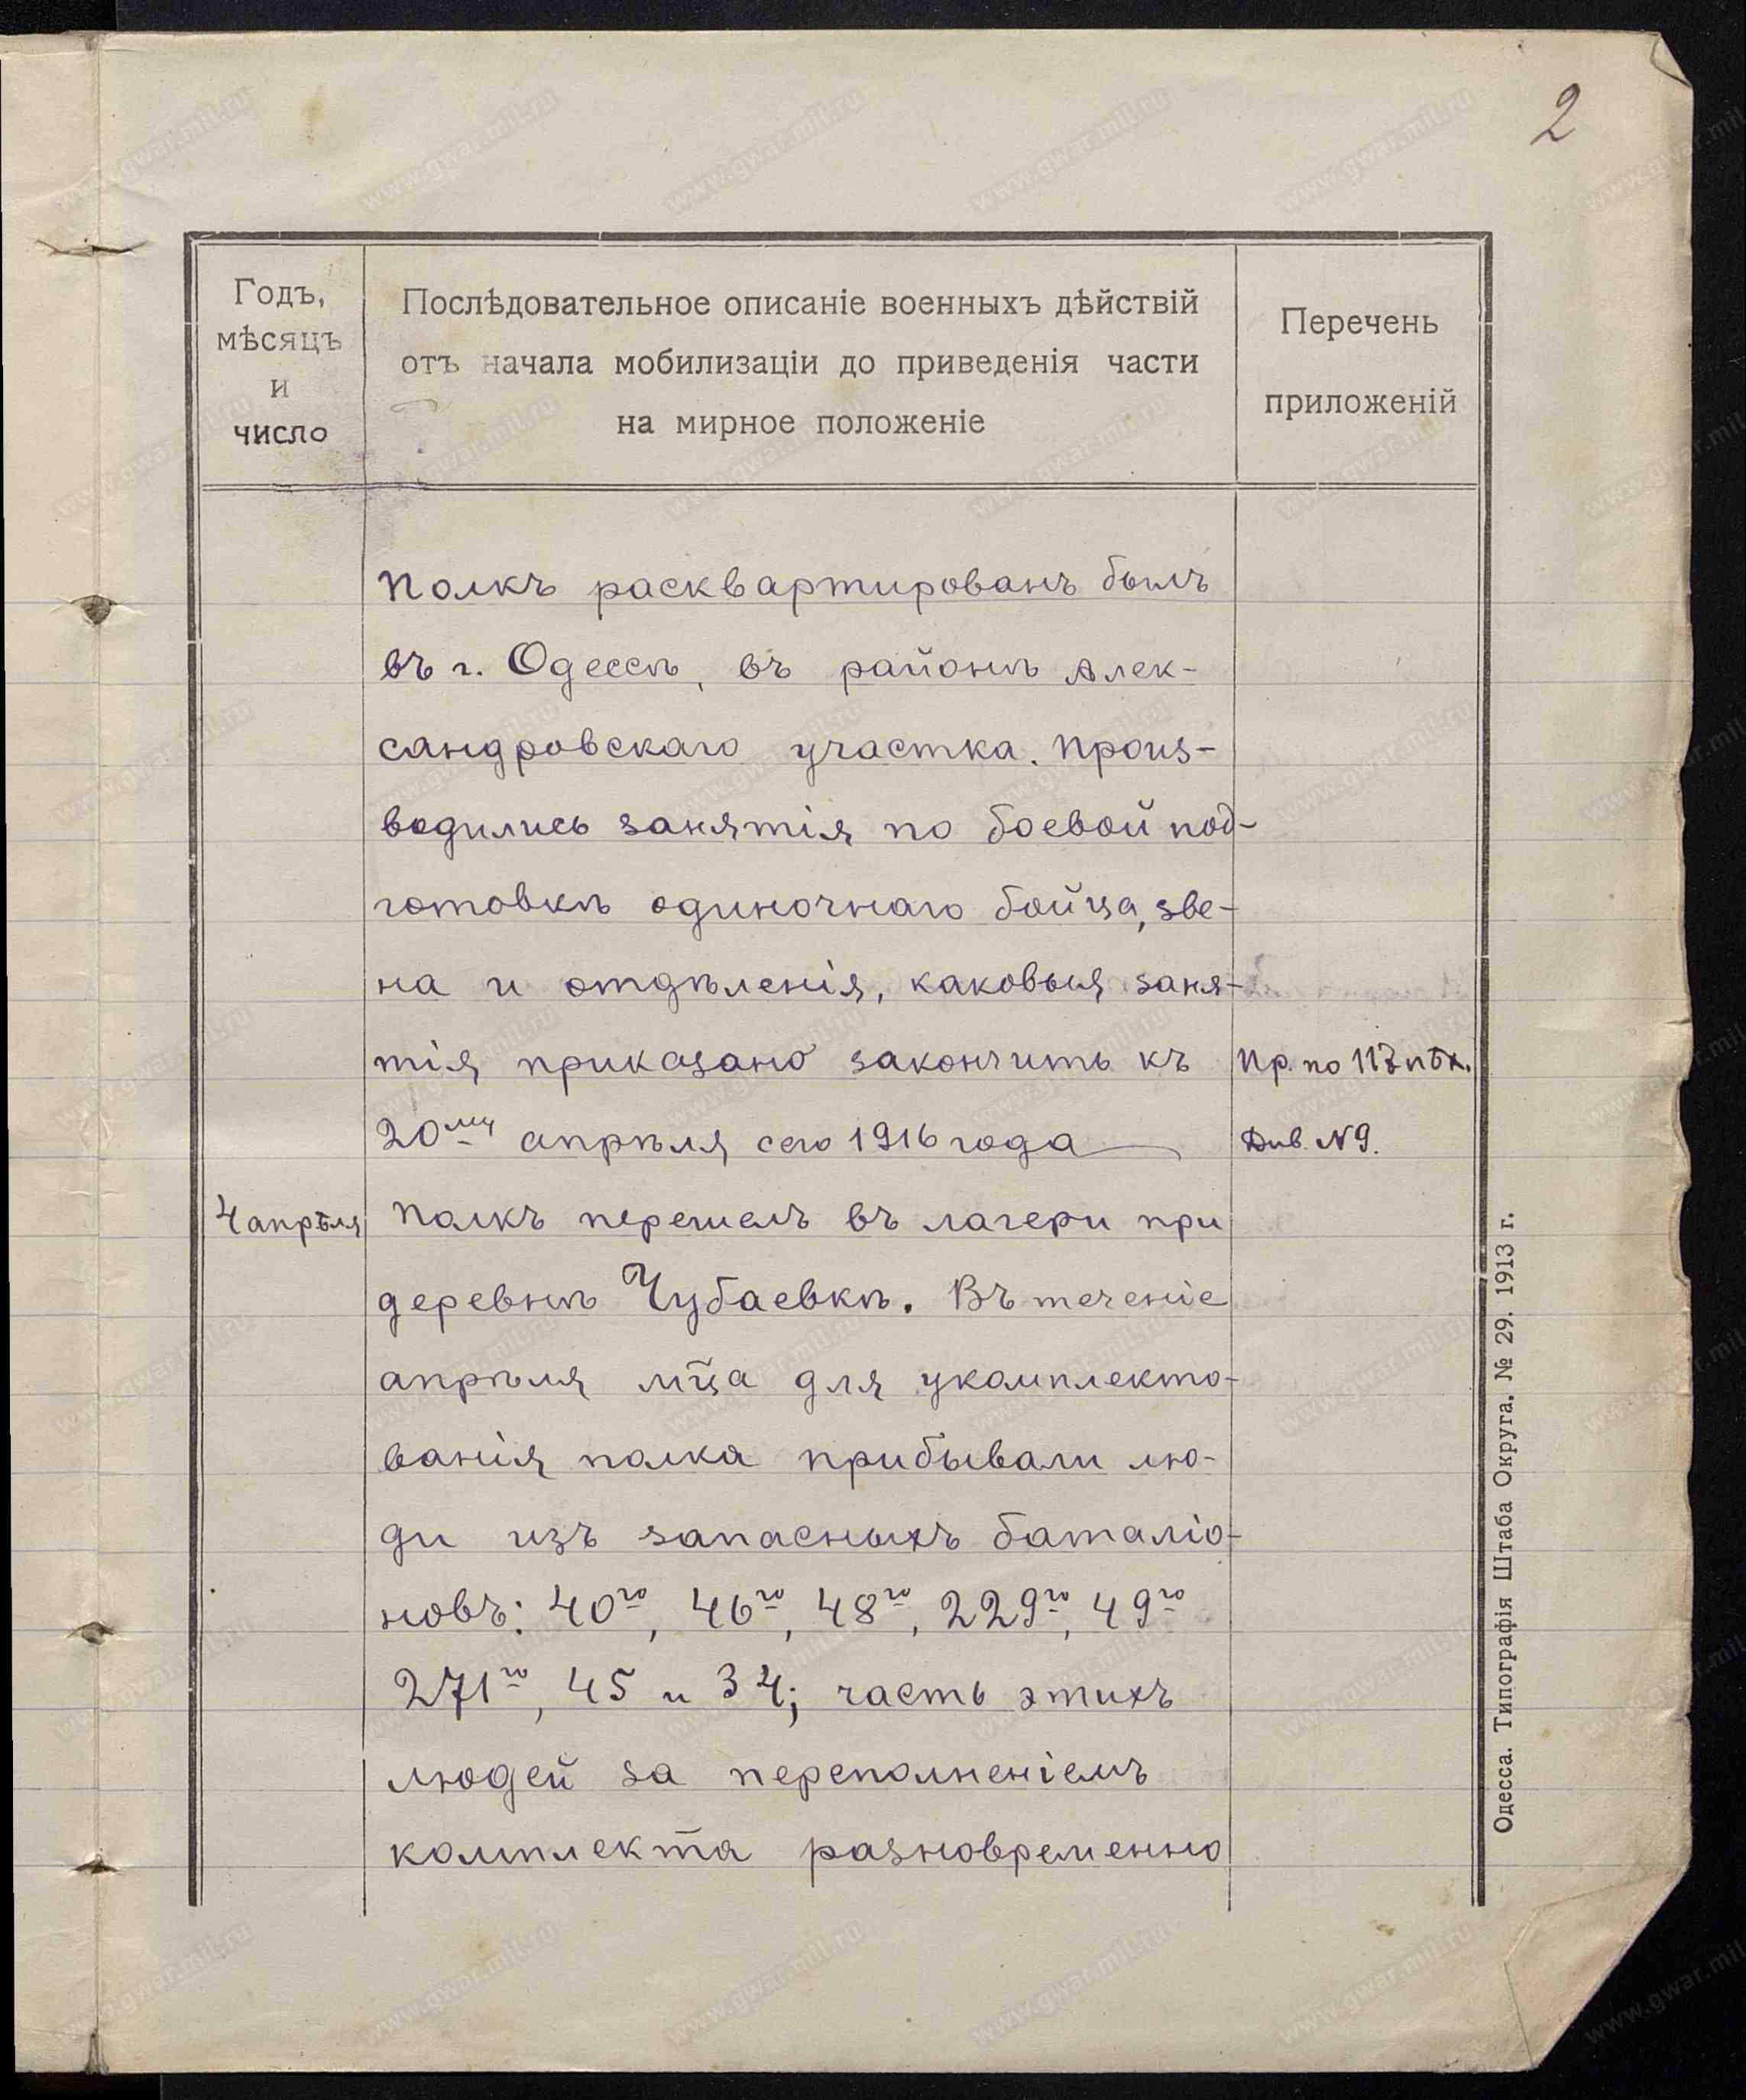 2
Годъ,
мѣсяцъ
и
число
Послѣдовательное описаніе военныхъ дѣйствій
отъ начала мобилизаціи до приведенія части
на мирное положеніе
Перечень
приложеній
Полкъ расквартированъ былъ
въ г. Одессѣ, въ районѣ Алек-
сандровскаго участка. Произ-
водились занятія по боевой под-
готовкѣ одиночнаго бойца, зве-
на и отдѣленія, каковыя заня-
тія приказано закончить къ
Пр. по 117 пѣх.
20му апрѣля сего 1916 года
Див. №9.
4 апрѣля
Полкъ перешелъ въ лагери при
деревнѣ Чубаевкѣ. Въ теченіе
апрѣля мца для укомплекто-
ванія полка прибывали лю-
ди изъ запасныхъ баталіо-
новъ: 40го, 46го, 48го, 229го, 49го
271го, 45 и 34; часть этихъ
людей за переполненіемъ
комплекта разновременно
Одесса. Типографія Штаба Округа. № 29. 1913 г.
www.gwar.mil.ru